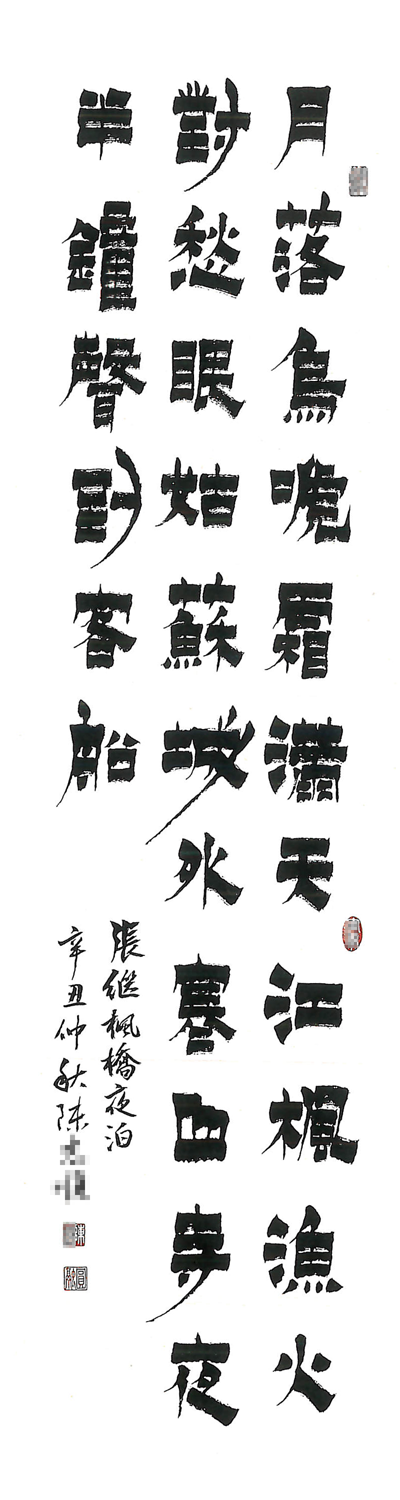 月落烏嗁霜滿天江楓漁火
對愁眠姑蘇城外寒山寺夜
半鐘聲到客船
張继楓橋夜泊
辛丑仲秋陈